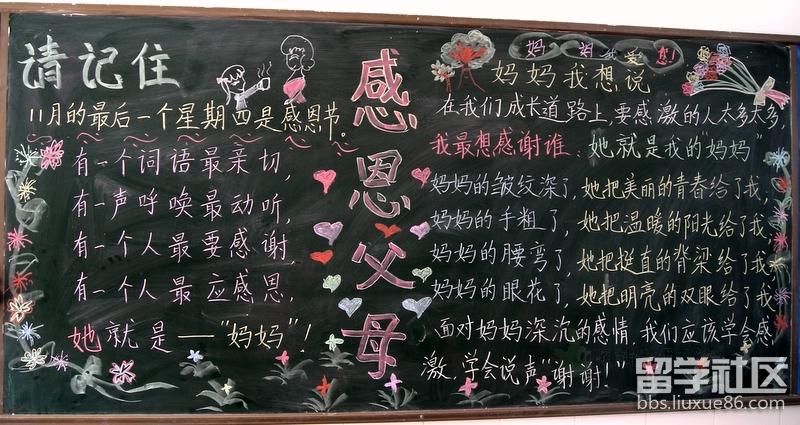 请记住
11月的最后一个星期四是感恩节。
有一个词语最亲切,
有一声呼唤最动听,
有一个人最要感谢,
有一个人最应感恩,
她就是——“妈妈”!
感恩父母
妈妈我爱您!
妈妈我想说
在我们成长道路上,要感激的人太多太多,
我最想感谢谁:她就是我的“妈妈”
妈妈的皱纹深了,她把美丽的青春给了我,
妈妈的手粗了,她把温暖的阳光给了我,
妈妈的腰弯了,她把挺直的脊梁给了我,
妈妈的眼花了,她把明亮的双眼给了我,
面对妈妈深沉的感情,我们应该学会感
激,学会说声“谢谢!”
留学社区
bbs.liuxue86.com